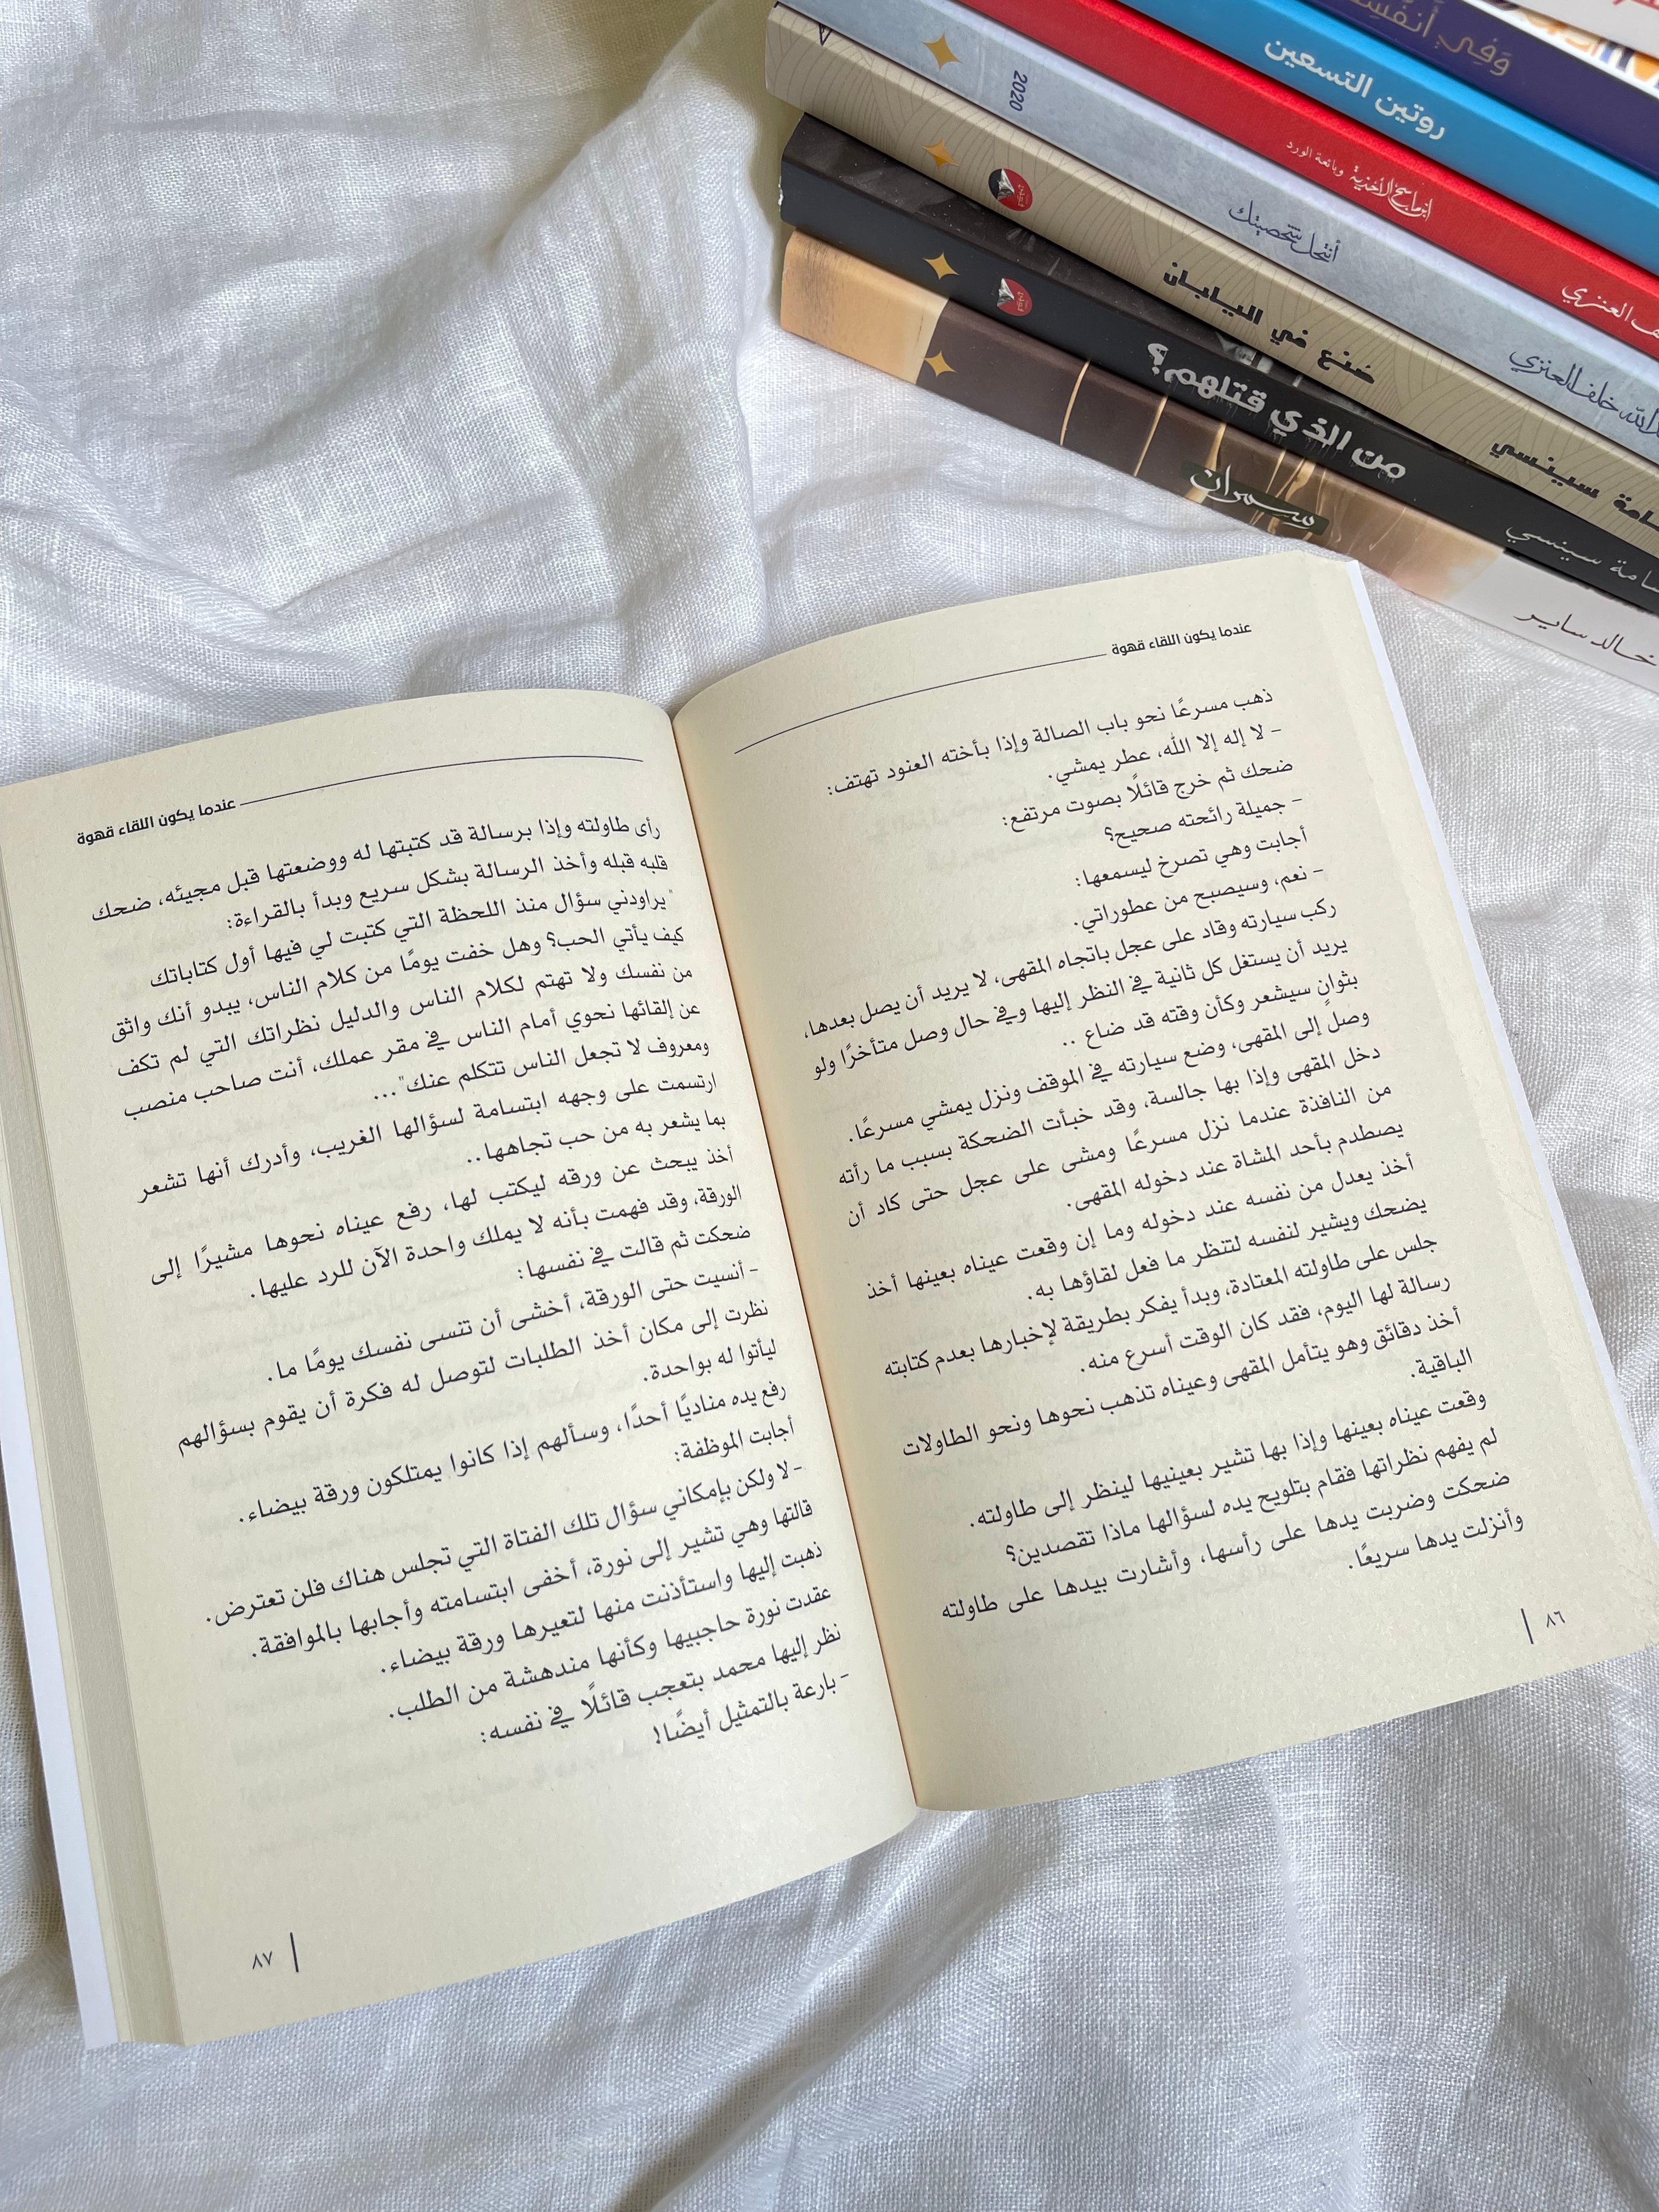 وَفِي أَنفُسِ
روتين التسعين
ابن ماسح الأحذية وبائعة الورد
ف العنزي
2020
أنتحل شخصيتك
دالله خلف العنزي
صنع في اليابان
سامة سينسي
من الذي قتلهم؟
سامة سينسي
سمران
خالد ساير
عندما يكون اللقاء قهوة
ذهب مسرعًا نحو باب الصالة وإذا بأخته العنود تهتف:
- لا إله إلا الله، عطر يمشي.
ضحك ثم خرج قائلًا بصوت مرتفع:
- جميلة رائحته صحيح؟
أجابت وهي تصرخ ليسمعها:
- نعم، وسيصبح من عطوراتي.
ركب سيارته وقاد على عجل باتجاه المقهى، لا يريد أن يصل بعدها،
يريد أن يستغل كل ثانية في النظر إليها وفي حال وصل متأخرًا ولو
بثوانٍ سيشعر وكأن وقته قد ضاع ..
وصل إلى المقهى، وضع سيارته في الموقف ونزل يمشي مسرعًا.
دخل المقهى وإذا بها جالسة، وقد خبأت الضحكة بسبب ما رأته
من النافذة عندما نزل مسرعًا ومشى على عجل حتى كاد أن
يصطدم بأحد المشاة عند دخوله المقهى.
أخذ يعدل من نفسه عند دخوله وما إن وقعت عيناه بعينها أخذ
يضحك ويشير لنفسه لتنظر ما فعل لقاؤها به.
جلس على طاولته المعتادة، وبدأ يفكر بطريقة لإخبارها بعدم كتابته
رسالة لها اليوم، فقد كان الوقت أسرع منه.
أخذ دقائق وهو يتأمل المقهى وعيناه تذهب نحوها ونحو الطاولات
الباقية.
وقعت عيناه بعينها وإذا بها تشير بعينيها لينظر إلى طاولته.
لم يفهم نظراتها فقام بتلويح يده لسؤالها ماذا تقصدين؟
ضحكت وضربت يدها على رأسها، وأشارت بيدها على طاولته
وأنزلت يدها سريعًا.
٨٦
عندما يكون اللقاء قهوة
رأى طاولته وإذا برسالة قد كتبتها له ووضعتها قبل مجيئه، ضحك
قلبه قبله وأخذ الرسالة بشكل سريع وبدأ بالقراءة:
"يراودني سؤال منذ اللحظة التي كتبت لي فيها أول كتاباتك
كيف يأتي الحب؟ وهل خفت يومًا من كلام الناس، يبدو أنك واثق
من نفسك ولا تهتم لكلام الناس والدليل نظراتك التي لم تكف
عن إلقائها نحوي أمام الناس في مقر عملك، أنت صاحب منصب
ومعروف لا تجعل الناس تتكلم عنك"...
ارتسمت على وجهه ابتسامة لسؤالها الغريب، وأدرك أنها تشعر
بما يشعر به من حب تجاهها..
أخذ يبحث عن ورقه ليكتب لها، رفع عيناه نحوها مشيرًا إلى
الورقة، وقد فهمت بأنه لا يملك واحدة الآن للرد عليها.
ضحكت ثم قالت في نفسها:
- أنسيت حتى الورقة، أخشى أن تنسى نفسك يومًا ما.
نظرت إلى مكان أخذ الطلبات لتوصل له فكرة أن يقوم بسؤالهم
ليأتوا له بواحدة.
رفع يده مناديًا أحدًا، وسألهم إذا كانوا يمتلكون ورقة بيضاء.
أجابت الموظفة:
- لا ولكن بإمكاني سؤال تلك الفتاة التي تجلس هناك فلن تعترض.
قالتها وهي تشير إلى نورة، أخفى ابتسامته وأجابها بالموافقة.
ذهبت إليها واستأذنت منها لتعيرها ورقة بيضاء.
عقدت نورة حاجبيها وكأنها مندهشة من الطلب.
نظر إليها محمد بتعجب قائلًا في نفسه:
- بارعة بالتمثيل أيضًا!
٨٧